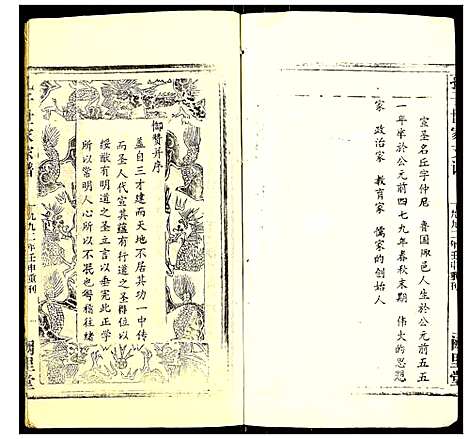 宣圣名丘字仲尼 鲁国陬邑人生於公元前五五
一年卒於公元前四七九年春秋末期 伟大的思想
家 政治家 教育家 儒家的创始人
一九九二年壬申重刊
阙里堂
御赞并序
盖自三才建而天地不居其功一中传
而圣人代宣其蕴有行道之圣得位以
绥猷有明道之圣立言以垂宪此正学
所以常明人心所以不泯也粤稽往绪
孔子世家宗谱
一九九二年壬申重刊
阙里堂